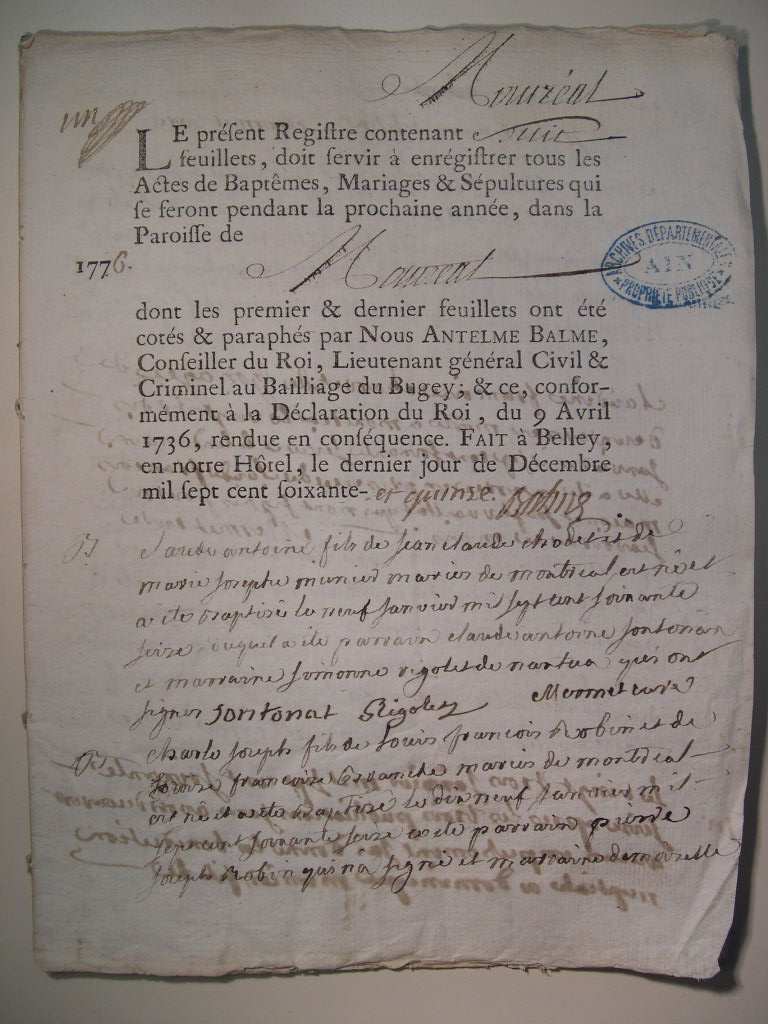 Monréal
un
LE préſent Regiſtre contenant huit
feuillets, doit ſervir à enrégiſtrer tous les
Actes de Baptêmes, Mariages & Sépultures qui
ſe feront pendant la prochaine année, dans la
Paroiſſe de
1776.
Monreal
ARCHIVES DÉPARTEMENTALES
AIN
PROPRIÉTÉ PUBLIQUE
dont les premier & dernier feuillets ont été
cotés & paraphés par Nous ANTELME BALME,
Conſeiller du Roi, Lieutenant général Civil &
Criminel au Bailliage du Bugey; & ce, confor-
mément à la Déclaration du Roi, du 9 Avril
1736, rendue en conſéquence. FAIT à Belley,
en notre Hôtel, le dernier jour de Décembre
mil ſept cent ſoixante- et quinze. Balme
B
Claude antoine fils de Jean claude chodet et de
marie Josephe munier mariés de montreal est né et
a ete baptisé le neuf Janvier mil sept cent soixante
seize duquel a ete parrain claude antoine Jontonan
et marraine simonne rigolet de nantua qui ont
signes Jontonat Rigolet Mermet curé
B
Charle Joseph fils de Louis francois Robin et de
Louise francoise Evranche mariés de montreal
est né et a ete baptizé le dix neuf Janvier mil
sept cent soixante seize a ete parrain pierre
Joseph Robin qui n'a signé et marraine demoiselle